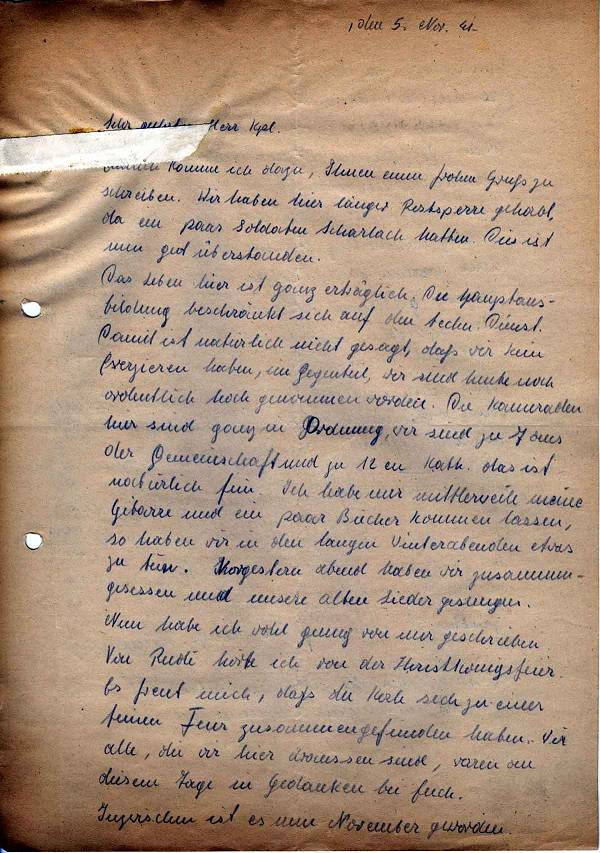 , den 5. Nov. 41.
Sehr Herr Kpl.
komme ich dazu, Ihnen einen frohen Gruß zu
schreiben. Wir haben hier länger gehabt,
da ein paar Soldaten Scharlach hatten. Dies ist
nun gut überstanden.
Das Leben hier ist ganz erträglich. Die Hauptaus-
bildung beschränkt sich auf den techn. Dienst.
Damit ist natürlich nicht gesagt, daß wir kein
Exerzieren haben, im Gegenteil, wir sind heute noch
ordentlich hoch genommen worden. Die Kameraden
hier sind ganz in Ordnung, wir sind zu 7 aus
der Gemeinschaft und zu 12 en Kath. das ist
natürlich fein. Ich habe mir mittlerweile meine
Gitarre und ein paar Bücher kommen lassen,
so haben wir in den langen Winterabenden etwas
zu tun. Vorgestern abend haben wir zusammen-
gesessen und unsere alten Lieder gesungen.
Nun habe ich wohl genug von mir geschrieben
Von Rudi hörte ich von der Christkönigsfeier.
Es freut mich, daß die sich zu einer
feinen Feier zusammengefunden haben. Wir
alle, die wir hier draussen sind, waren an
diesem Tage in Gedanken bei Euch.
Inzwischen ist es nun November geworden.